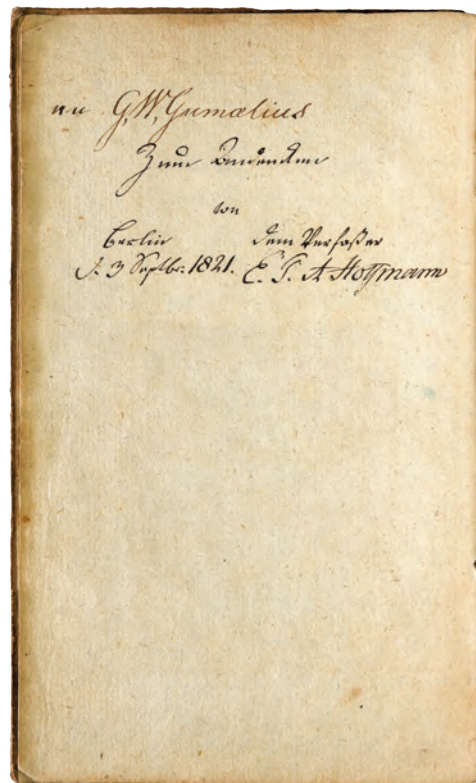 an G. W. Gumælius
Zum Andenken
von
Berlin dem Verfaßer
d. 3 Septbr: 1821. E. T. A Hoffmann